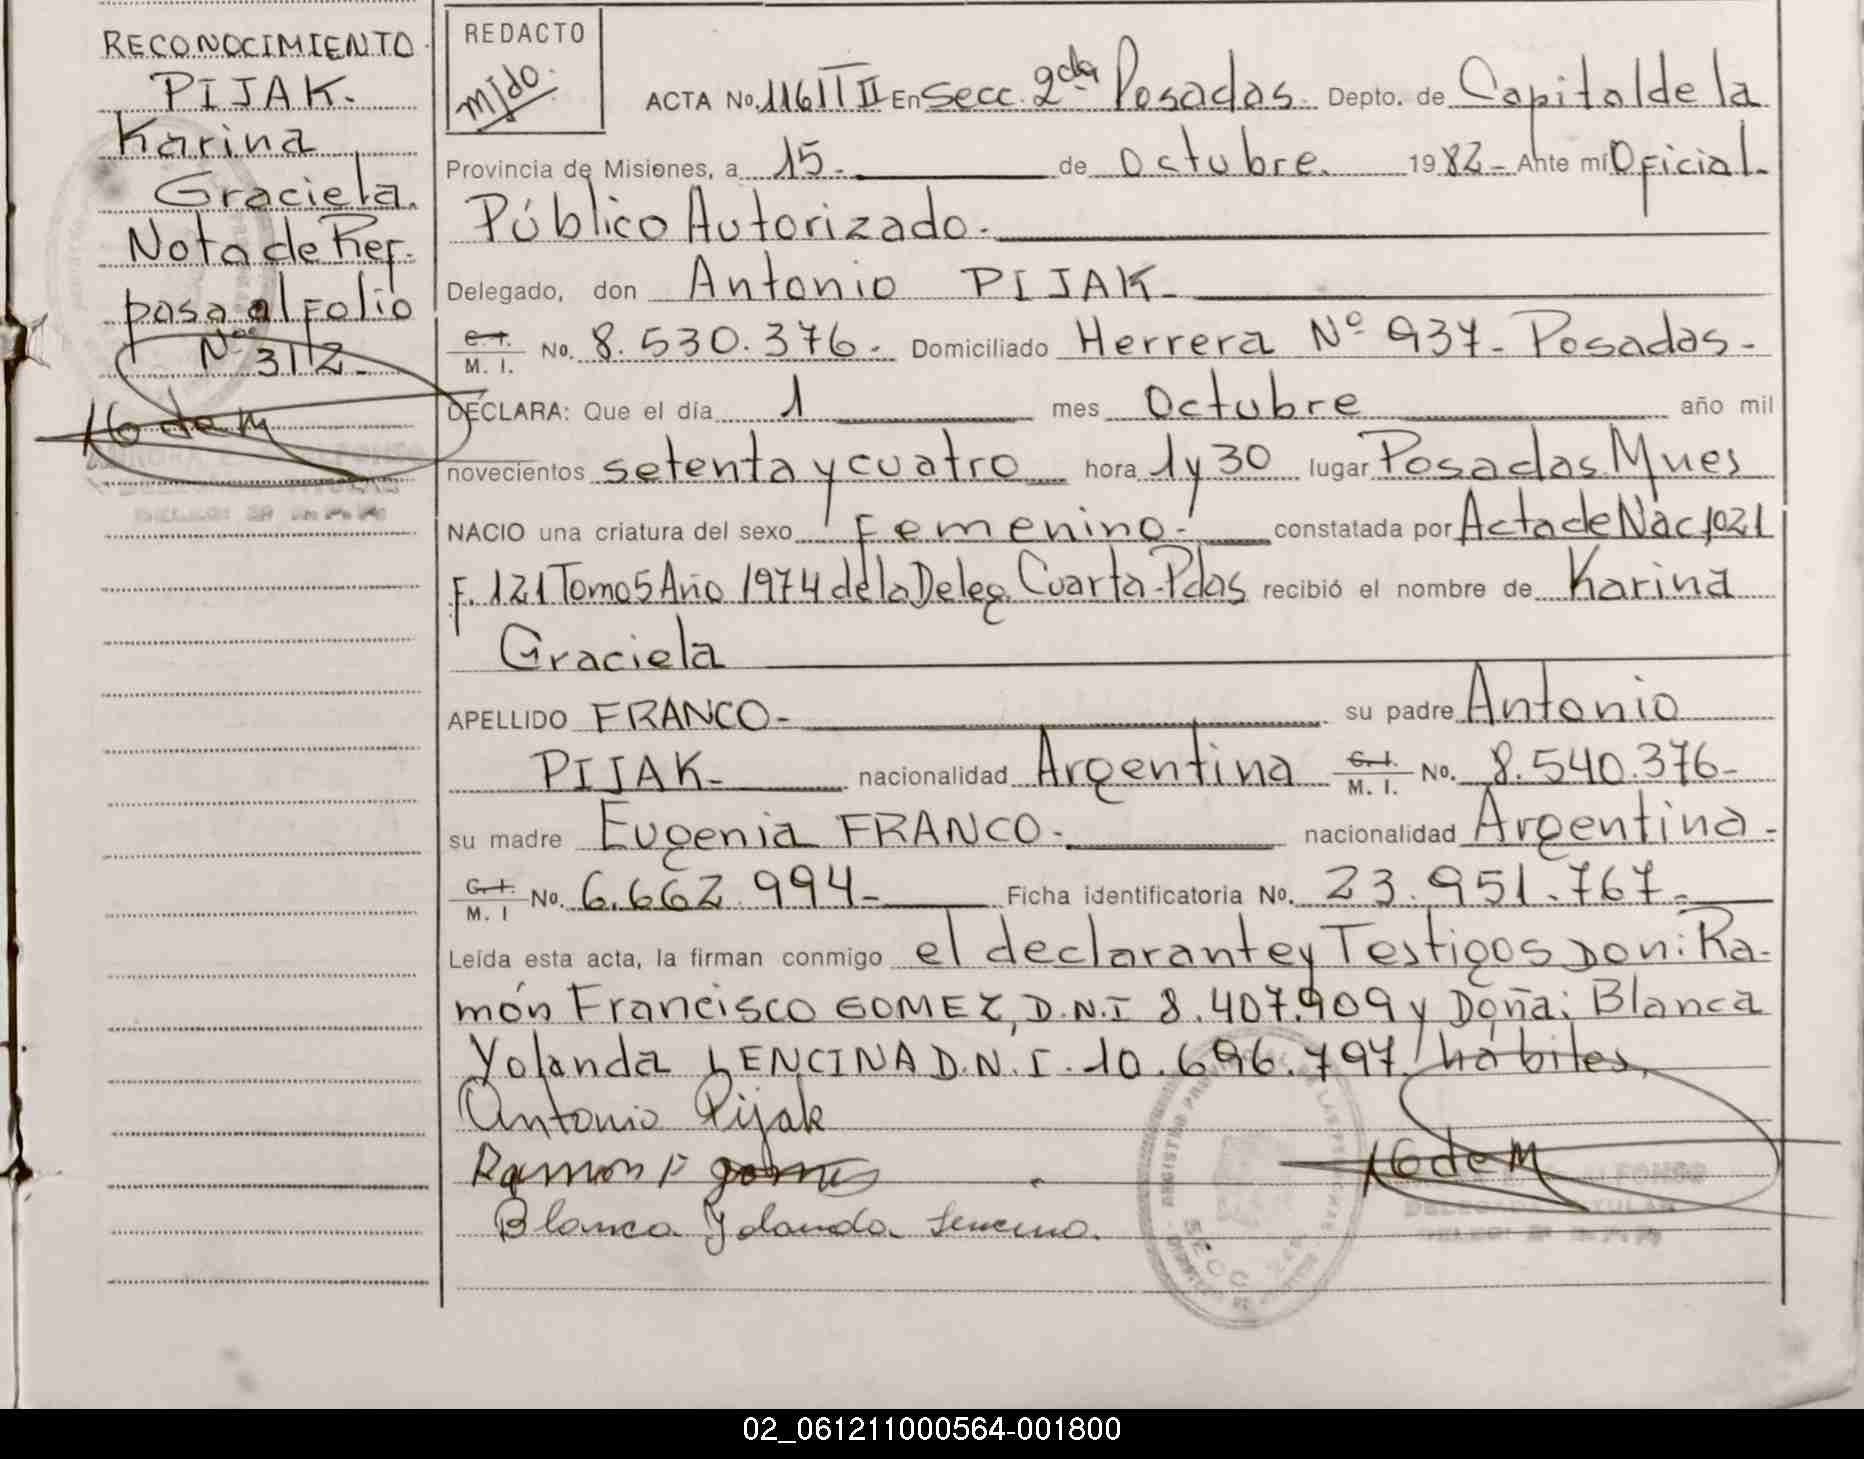 RECONOCIMIENTO.
PIJAK.
Karina
Graciela.
Nota de Ref.
pasa al Folio
Nº 312.
REDACTO
ACTA No. 116 TII En Secc. 2da Posadas. Depto. de Capital de la
Provincia de Misiones, a 15. de Octubre. 1982 - Ante mí Oficial.
Público Autorizado.
Delegado, don Antonio PIJAK
C. I. M. I. No. 8.530.376. Domiciliado Herrera Nº 937 - Posadas -
DECLARA: Que el día 1 mes Octubre año mil
novecientos setenta y cuatro hora 1 y 30 lugar Posadas Mnes
NACIO una criatura del sexo Femenino - constatada por Acta de Nac 1021
F. 121 Tomo 5 Año 1974 de la Deleg. Cuarta - Pdas recibió el nombre de Karina
Graciela
APELLIDO FRANCO - su padre Antonio
PIJAK - nacionalidad Argentina C. I. M. I. No. 8.540.376 -
su madre Eugenia FRANCO - nacionalidad Argentina -
C. I. M. I No. 6.662.994 - Ficha identificatoria No. 23.951.767 -
Leída esta acta, la firman conmigo el declarante y Testigos Don: Ra-
món Francisco GOMEZ, D.N.I 8.407.909 y Doña: Blanca
Yolanda LENCINA D.N.I. 10.696.797 hábiles,
Antonio Pijak
Ramon F gomes
Blanca Yolanda Lencina.
02_061211000564-001800